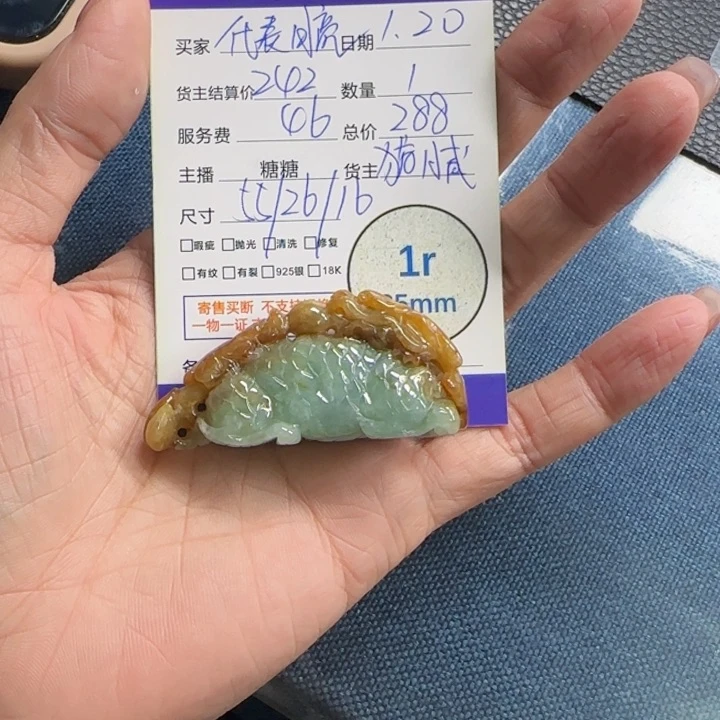 买家 代表月亮 日期 1.20
货主结算价 242 数量 1
服务费 46 总价 288
主播 糖糖 货主
尺寸 55/26/16
□瑕疵 □抛光 □清洗 □修复
□有纹 □有裂 □925银 □18K
1r
5mm
寄售买断 不支
一物一证